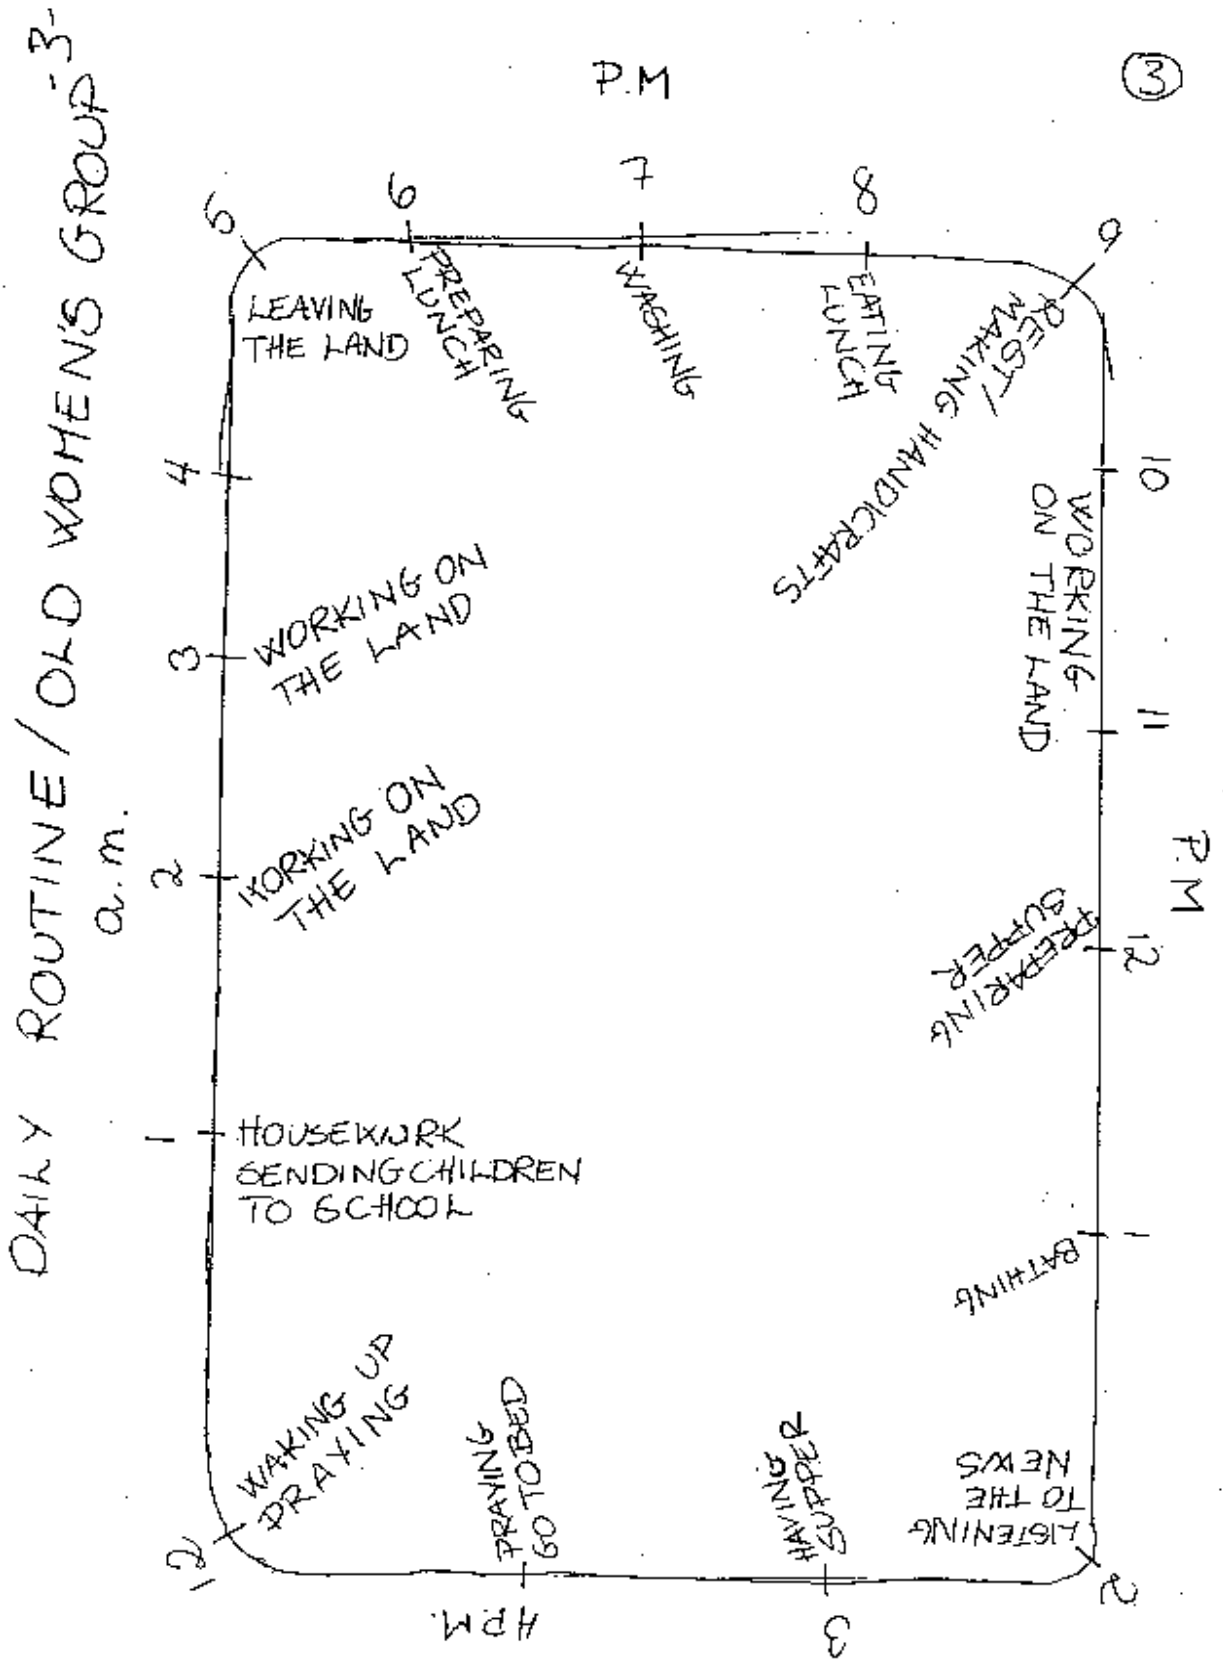 DAILY ROUTINE / OLD WOMEN'S GROUP -3-
a.m.
P.M
3
12
WAKING UP
PRAYING
1
HOUSEWORK
SENDING CHILDREN
TO SCHOOL
2
WORKING ON
THE LAND
3
WORKING ON
THE LAND
4
5
LEAVING
THE LAND
6
PREPARING
LUNCH
7
WASHING
8
EATING
LUNCH
9
REST/
MAKING HANDICRAFTS
10
WORKING
ON THE LAND
11
P.M
12
PREPARING
SUPPER
1
BATHING
2
LISTENING
TO THE
NEWS
3
HAVING
SUPPER
4 P.M.
PRAYING
GO TO BED